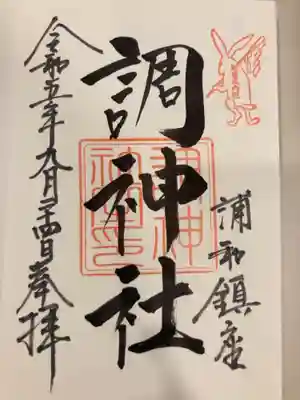 浦和鎮座
調神社
令和五年九月二十四日奉拝